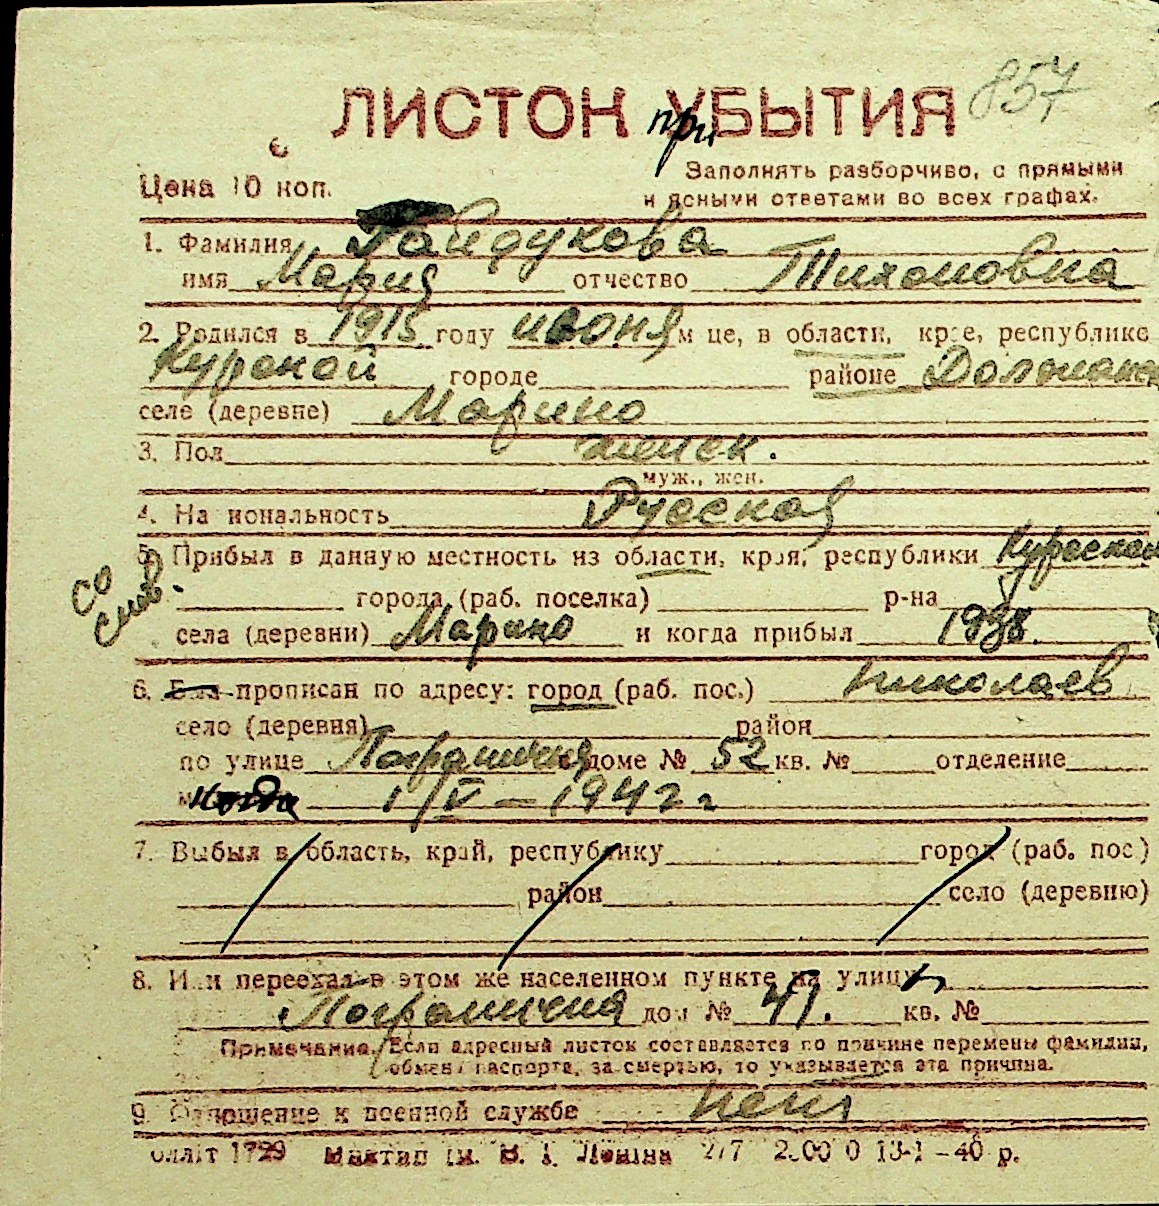 857
ЛИСТОК при УБЫТИЯ
Цена 10 коп.
Заполнять разборчиво, с прямыми
и ясными ответами во всех графах.
1. Фамилия Гайдукова
имя Мария отчество Тихоновна
2. Родился в 1915 году июня м це, в области, крае, республике
Курской городе районе
селе (деревне) Марино
3. Пол женск.
муж., жен.
4. Национальность Русская
5. Прибыл в данную местность из области, края, республики Курской
со слов.
города (раб. поселка) р-на
села (деревни) Марино и когда прибыл 1938.
6. Был прописан по адресу: город (раб. пос.) Николаев
село (деревня) район
по улице Погранична доме № 52 кв. № отделение
когда 1/V – 1942 г
7. Выбыл в область, край, республику город (раб. пос)
район село (деревню)
8. Или переехал в этом же населенном пункте на улицу
Погранична дом № 41. кв. №
Примечание. Если адресный листок составляется по причине перемены фамилии,
обмен паспорта, за смертью, то указывается эта причина.
9. Отношение к военной службе нет
1729 Ленина 2/7 13-1-40 р.